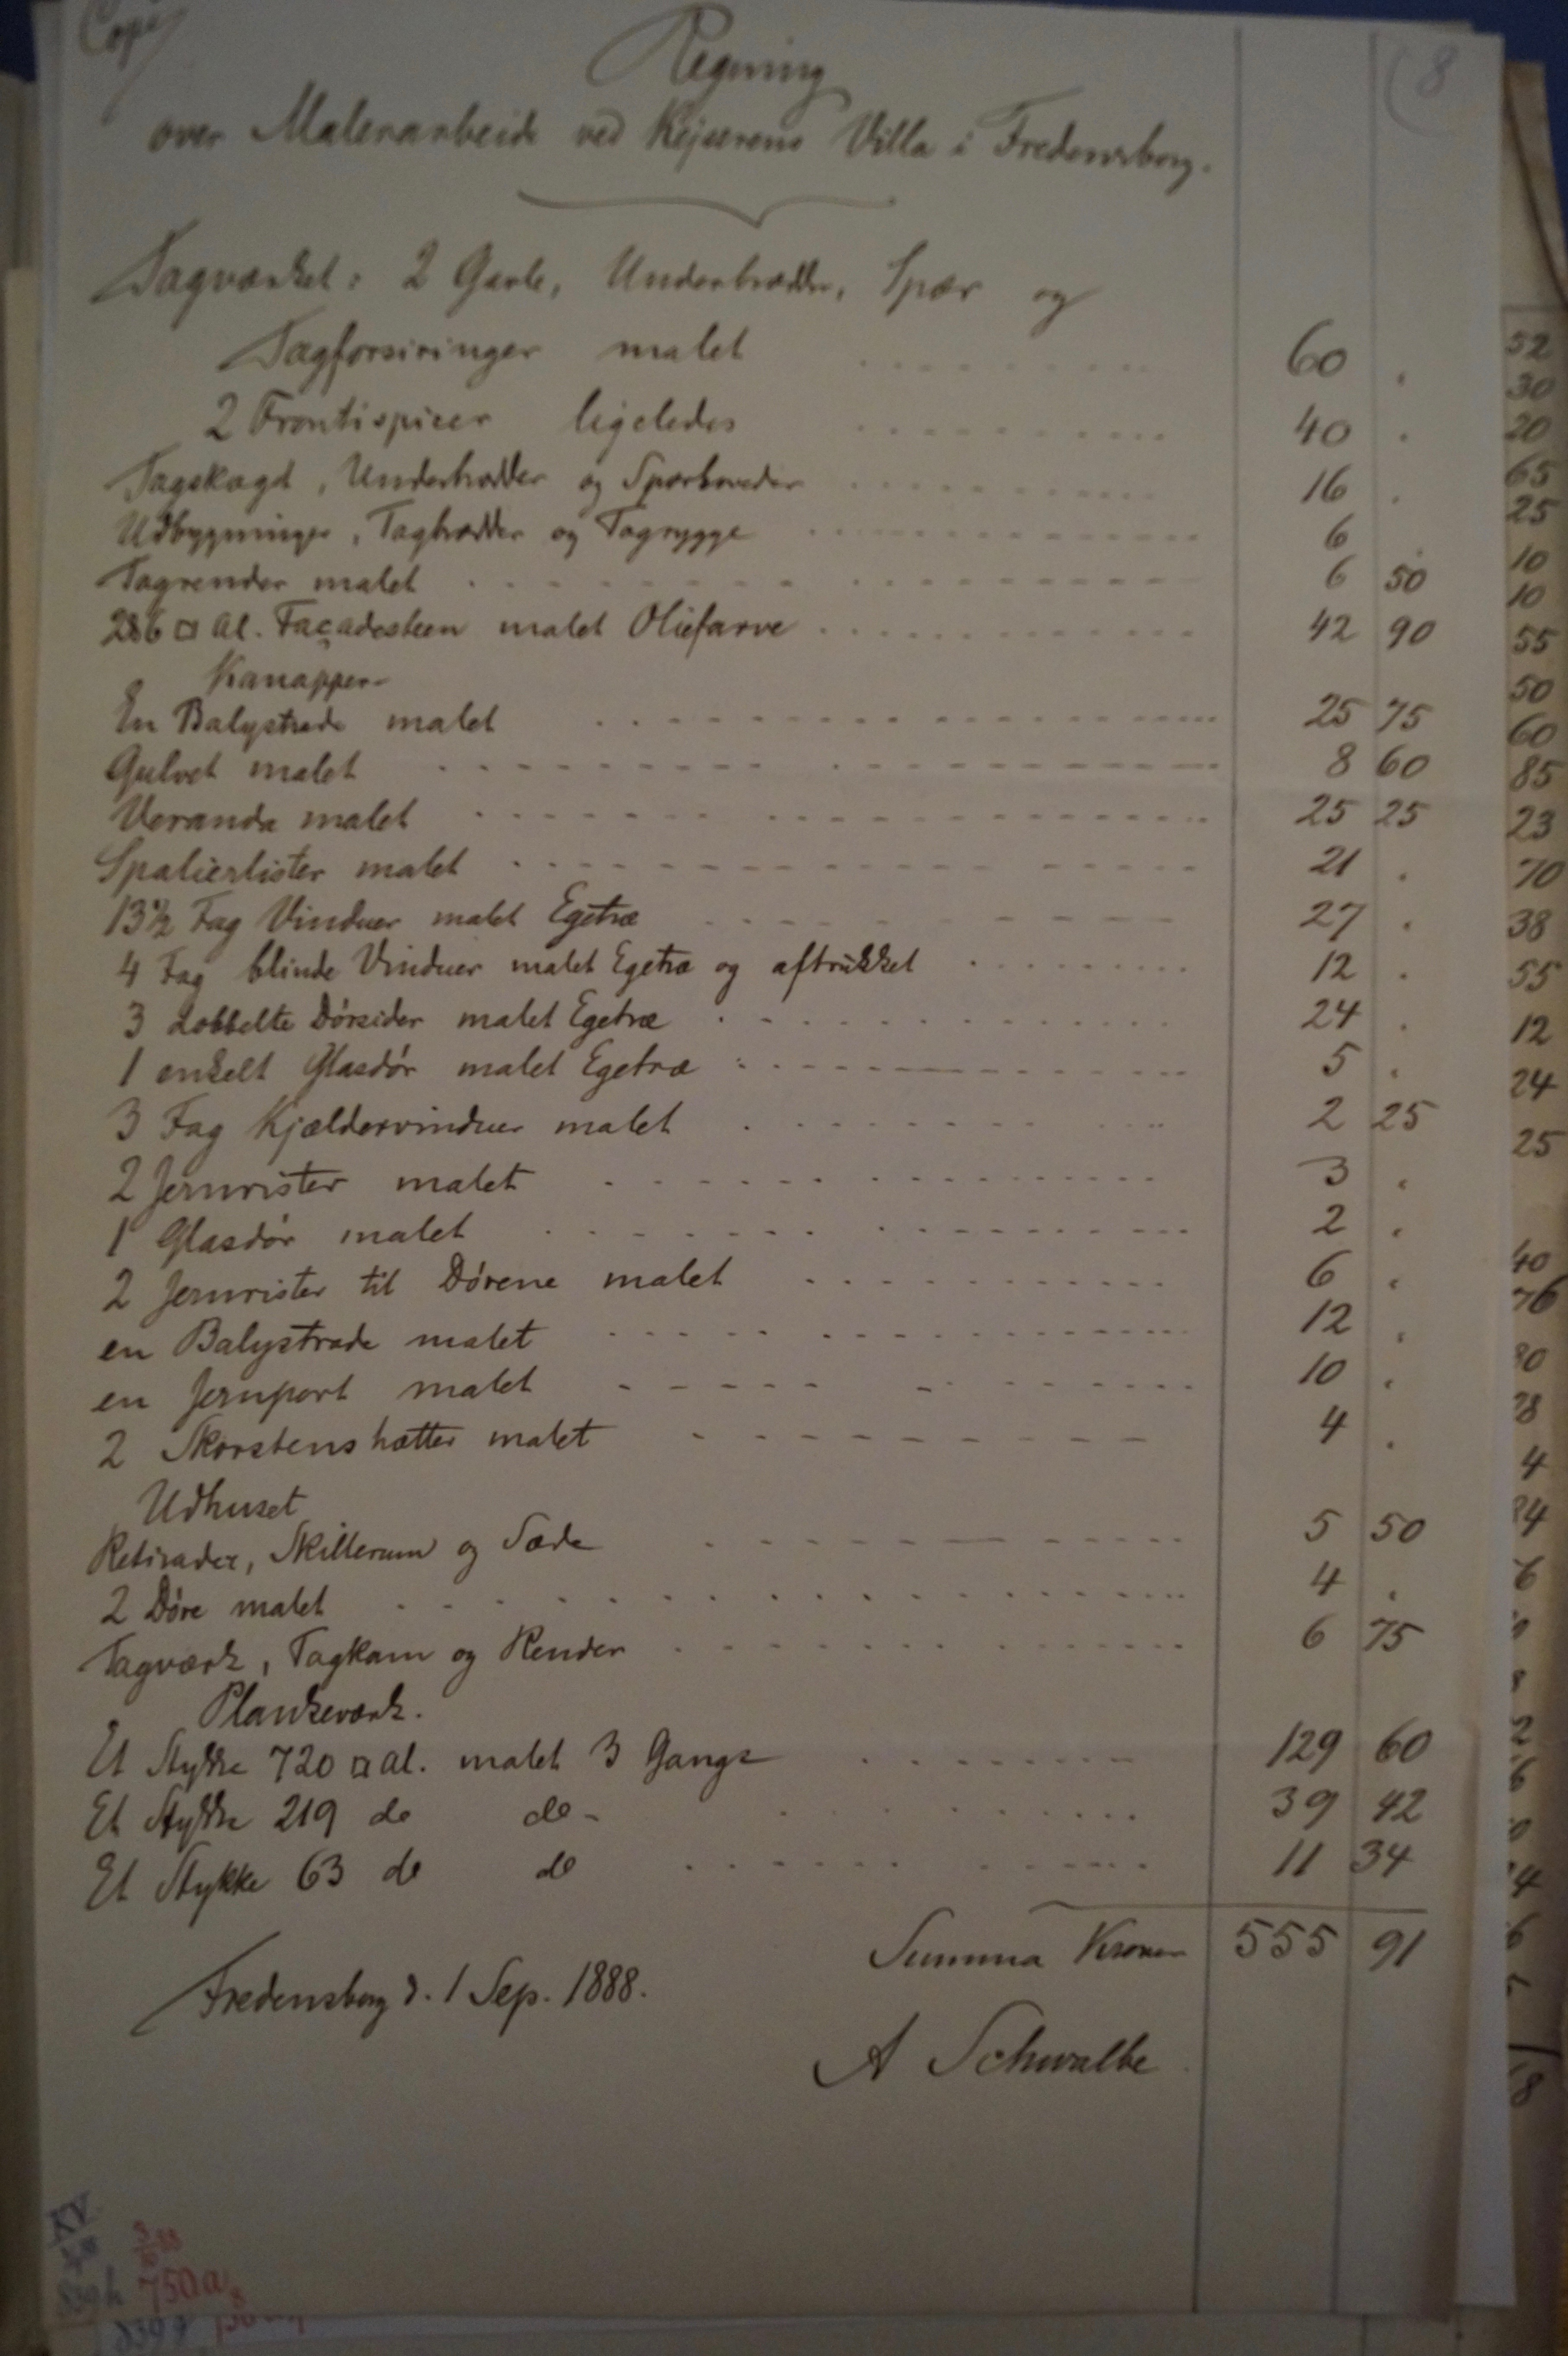 Copi
8
Regning
over Malerarbeide ved Kejserens Villa i Fredensborg.
Tagværket: 2 Gavle, Underbrædder, Spær og
Tagforsiringer malet 60 .
2 Frontispicer ligeledes 40 .
Tagskægd, Underbrædder og Spærhoveder 16 .
Udbygninger, Tagbrædder og Tagrygge 6 .
Tagrender malet 6 50
286 □ Al. Façadesteen malet Oliefarve 42 90
Kanapper
En Balystrade malet 25 75
Gulvet malet 8 60
Veranda malet 25 25
Spalierlister malet 21 .
13½ Fag Vinduer malet Egetræ 27 .
4 Fag blinde Vinduer malet Egetræ og aftrukket 12 .
3 dobbelte Dørsider malet Egetræ 24 .
1 enkelt Glasdør malet Egetræ 5 .
3 Fag Kjældervinduer malet 2 25
2 Jernrister malet 3 .
1 Glasdør malet 2 .
2 Jernrister til Dørene malet 6 .
en Balystrade malet 12 .
en Jernport malet 10 .
2 Skorstenshætter malet 4 .
Udhuset
Retirader, Skillerum og Sæde 5 50
2 Døre malet 4 .
Tagværk, Tagkam og Render 6 75
Plankeværk.
Et Stykke 720 □ Al. malet 3 Gange 129 60
Et Stykke 219 do do 39 42
Et Stykke 63 do do 11 34
Summa Kroner 555 91
Fredensborg d. 1 Sep. 1888.
A Schwalbe
KV
750a